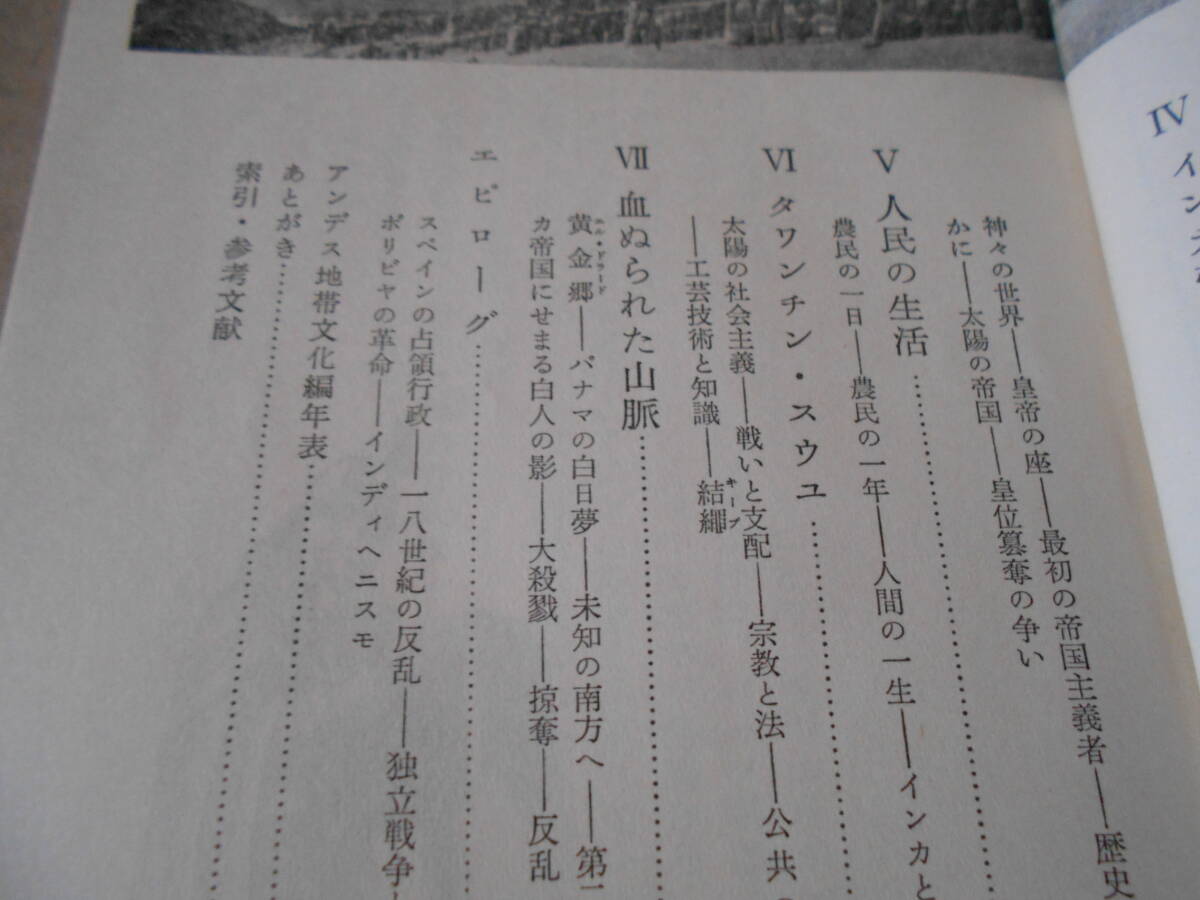 IV イン
神々の世界――皇帝の座――最初の帝国主義者――歴史
かに――太陽の帝国――皇位簒奪の争い
V 人民の生活…………
農民の一日――農民の一年――人間の一生――インカと
VI タワンチン・スウユ…………
太陽の社会主義――戦いと支配――宗教と法――公共
――工芸技術と知識――結繩
キープ
VII 血ぬられた山脈…………
エル・ドラード
黄金郷――パナマの白日夢――未知の南方へ――第
カ帝国にせまる白人の影――大殺戮――掠奪――反乱
エピローグ…………
スペインの占領行政――一八世紀の反乱――独立戦争
ボリビヤの革命――インディヘニスモ
アンデス地帯文化編年表…………
あとがき…………
索引・参考文献